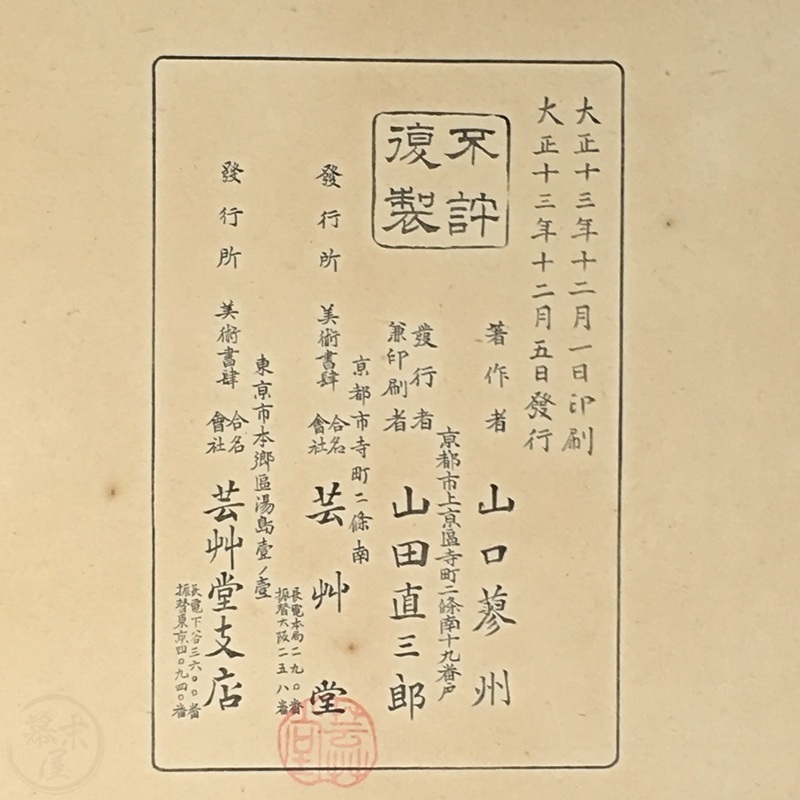 大正十三年十二月一日印刷
大正十三年十二月五日發行
不許
復製
著作者 山口蓼州
京都市上京區寺町二條南十九番戸
發行者
兼印刷者 山田直三郎
京都市寺町二條南
發行所 美術書肆 合名會社 芸艸堂
長電本局二九〇番
振替大阪二五八番
東京市本鄉區湯島壹ノ壹
發行所 美術書肆 合名會社 芸艸堂支店
長電下谷三六〇〇番
振替東京四〇九四〇番
芸艸堂
幕末屋